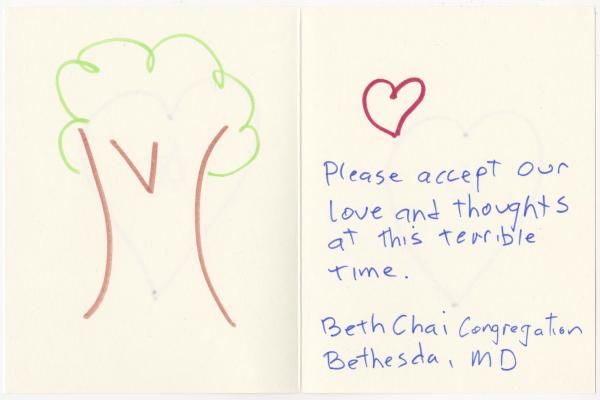 Please accept our
love and thoughts
at this terrible
time.
Beth Chai Congregation
Bethesda, MD